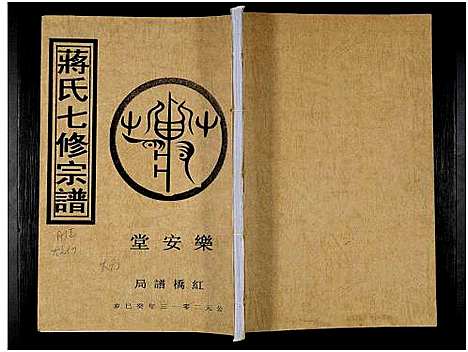 蔣氏七修宗譜
樂安堂
紅橋譜局
公元二零一三年癸巳